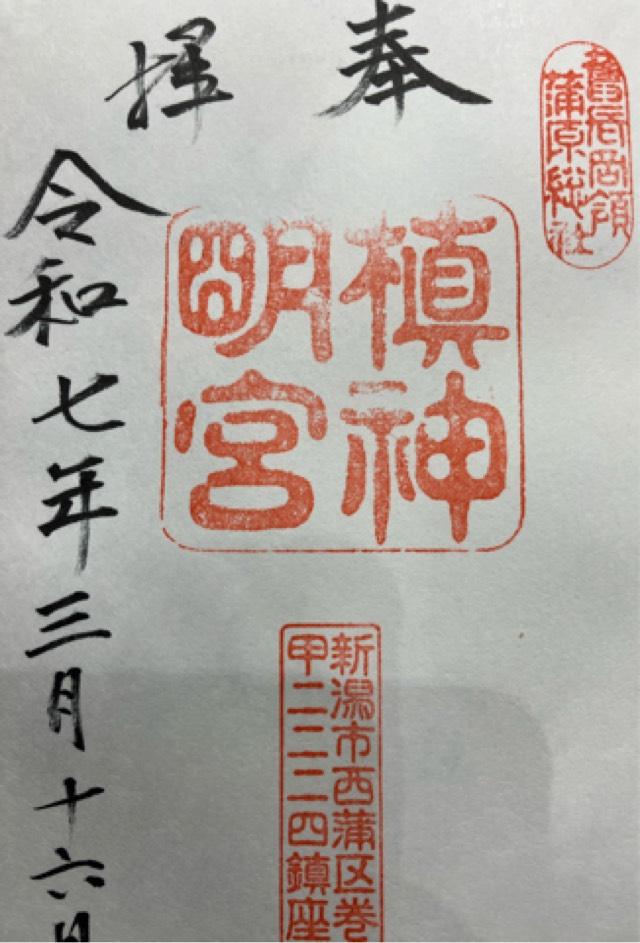 蒲原総社
奉拝
槙神
明宮
新潟市西蒲区巻
甲二二二四鎮座
令和七年三月十六日